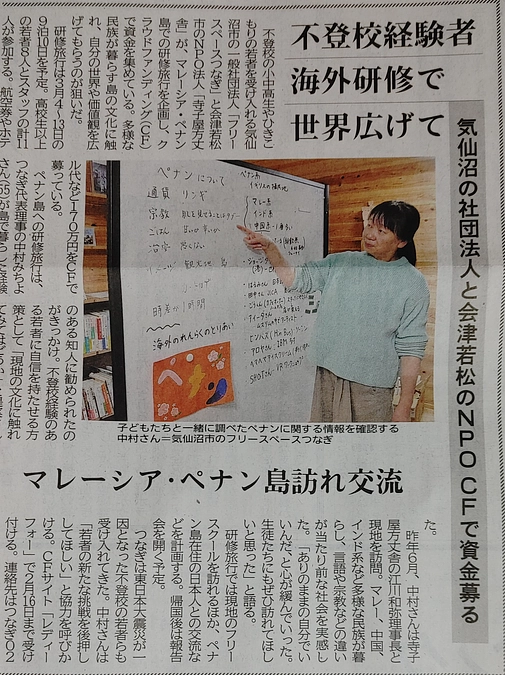 不登校経験者
海外研修で
世界広げて
気仙沼の社団法人と会津若松のNPO CFで資金募る
不登校の小中高生やひきこ
もりの若者を受け入れる気仙
沼市の一般社団法人「フリー
スペースつなぎ」と会津若松
市のNPO法人「寺子屋方丈
舎」が、マレーシア・ペナン
島での研修旅行を企画し、ク
ラウドファンディング(CF)
で資金を集めている。多様な
民族が暮らす島の文化に触
れ、自分の世界や価値観を広
げてもらうのが狙いだ。
研修旅行は3月4~13日の
9泊10日を予定。高校生以上
の若者8人とスタッフの計11
人が参加する。航空券やホテ
ル代など170万円をCFで
募っている。
ペナン島への研修旅行は、
つなぎ代表理事の中村みちよ
さん(65)が島で暮らした経験
のある知人に勧められたの
がきっかけ。不登校経験のあ
る若者に自信を持たせる方
策として「現地の文化に触れ
ペナンについて
通貨 リンギ
宗教
ごはん
治安
観光地
時差が1時間
海外のれんらくのとりあい
ペナン
マレー系
インド系
子どもたちと一緒に調べたペナンに関する情報を確認する
中村さん=気仙沼市のフリースペースつなぎ
マレーシア・ペナン島訪れ交流
た。
昨年6月、中村さんは寺子
屋方丈舎の江川和弥理事長と
現地を訪問。マレー、中国、
インド系など多様な民族が暮
らし、言語や宗教などの違い
が当たり前な社会を実感し
た。「ありのままの自分でい
いんだ、と心が緩んでいった。
生徒たちにもぜひ訪れてほし
いと思った」と語る。
研修旅行では現地のフリー
スクールを訪れるほか、ペナ
ン島在住の日本人との交流な
どを計画する。帰国後は報告
会を開く予定。
つなぎは東日本大震災が一
因となった不登校の若者らも
受け入れてきた。中村さんは
「若者の新たな挑戦を後押し
してほしい」と協力を呼びか
ける。CFサイト「レディー
フォー」で2月16日まで受け
付ける。連絡先はつなぎ02